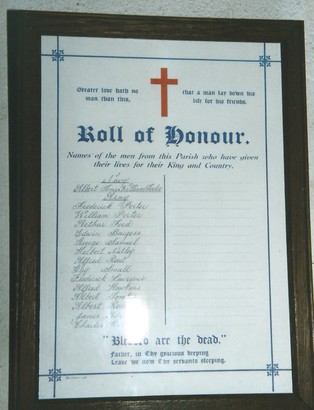 Greater love hath no
man than this,
that a man lay down his
life for his friends.
Roll of Honour.
Names of the men from this Parish who have given
their lives for their King and Country.
Navy
Albert
Army
Frederick Porter
William Porter
Arthur Ford
Edwin Burgess
George Samuel
Herbert
Alfred
Small
Frederick Lawrence
Alfred Hawkins
Albert
Albert
James
Charles
"Blessed are the dead."
Father, in Thy gracious keeping
Leave we now Thy servants sleeping.